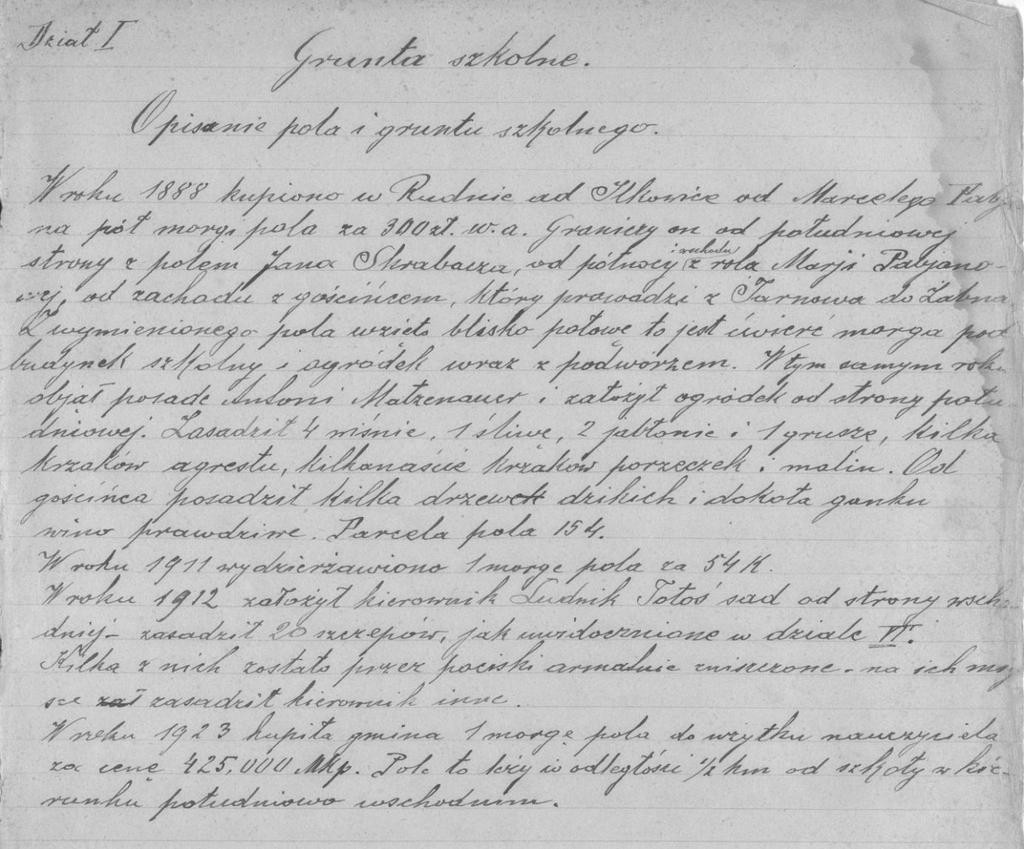 Dział I
Grunta szkolne.
Opisanie pola i gruntu szkolnego.
W roku 1888 kupiono w Rudnie ad Ilkowice od Marcelego
na pół morgi pola za 300 zł. w. a. Graniczy on od południowej
strony z polem Jana Skrabacza, od północy i wschodu z rolą Marji Pabjano-
wej, od zachodu z gościńcem, który prowadzi z Tarnowa do Żabna
Z wymienionego pola wzięto blisko połowę to jest ćwierć morga pod
budynek szkolny i ogródek wraz z podwórzem. W tym samym roku
objął posadę Antoni Matzenauer i założył ogródek od strony połu-
dniowej. Zasadził 4 wiśnie, 1 śliwę, 2 jabłonie i 1 gruszę, kilka
krzaków agrestu, kilkanaście krzaków porzeczek i malin. Od
gościńca posadził kilka drzewek dzikich i dokoła ganku
wino prawdziwe. Parcela pola 154.
W roku 1911 wydzierżawiono 1 morgę pola za 54 K.
W roku 1912 założył kierownik Ludwik Totoś sad od strony wscho-
dniej - zasadził 20 szczepów, jak uwidocznione w dziale VI.
Kilka z nich zostało przez pociski armatnie zniszczone - na ich miej
sce zasadził kierownik inne.
W roku 1923 kupiła gmina 1 morgę pola do użytku nauczyciela
za cenę 425,000 Mkp. Pole to leży w odległości ½ km od szkoły w kie-
runku południowo wschodnim.